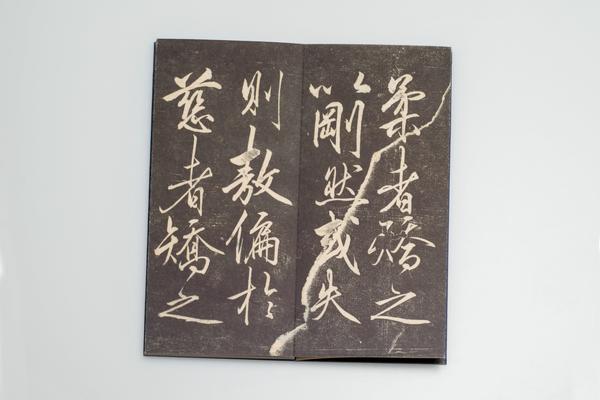 柔者矯之
以剛然或失
則敖偏於
慈者矯之